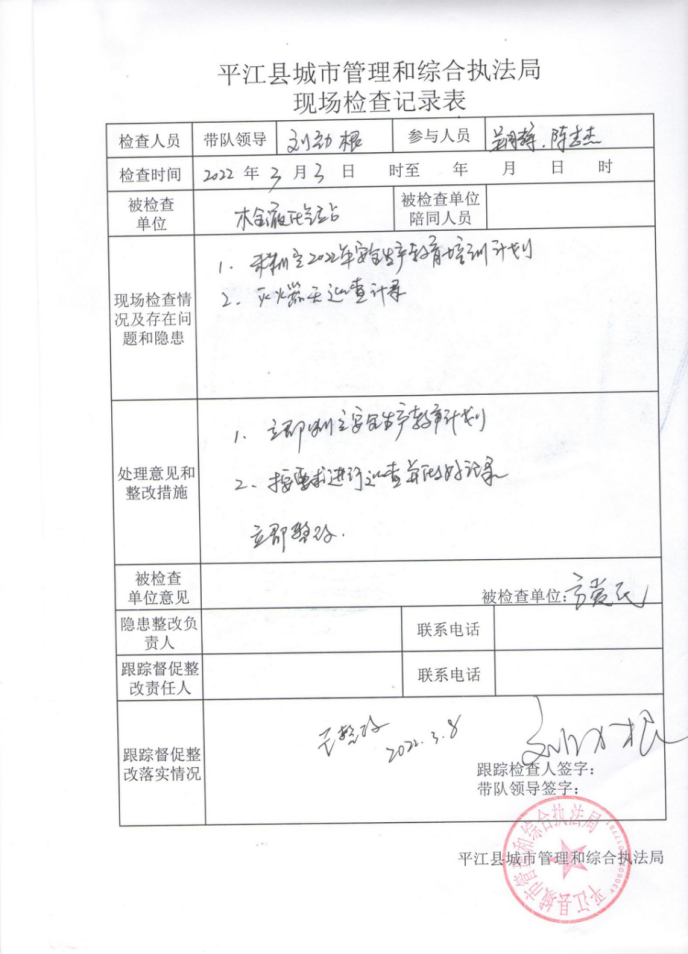 平江县城市管理和综合执法局
现场检查记录表
检查人员 带队领导 刘劲根 参与人员 陈杰
检查时间 2022 年 3 月 3 日 时至 年 月 日 时
被检查单位 被检查单位陪同人员
现场检查情况及存在问题和隐患
1. 未制定2022年安全生产教育培训计划
2. 灭火器无巡查记录
处理意见和整改措施
1. 立即制定安全生产教育计划
2. 按要求进行巡查并做好记录
立即整改.
被检查单位意见
被检查单位:
隐患整改负责人 联系电话
跟踪督促整改责任人 联系电话
跟踪督促整改落实情况
已整改 2022.3.8
刘劲根
跟踪检查人签字:
带队领导签字:
平江县城市管理和综合执法局
平江县城市管理和综合执法局